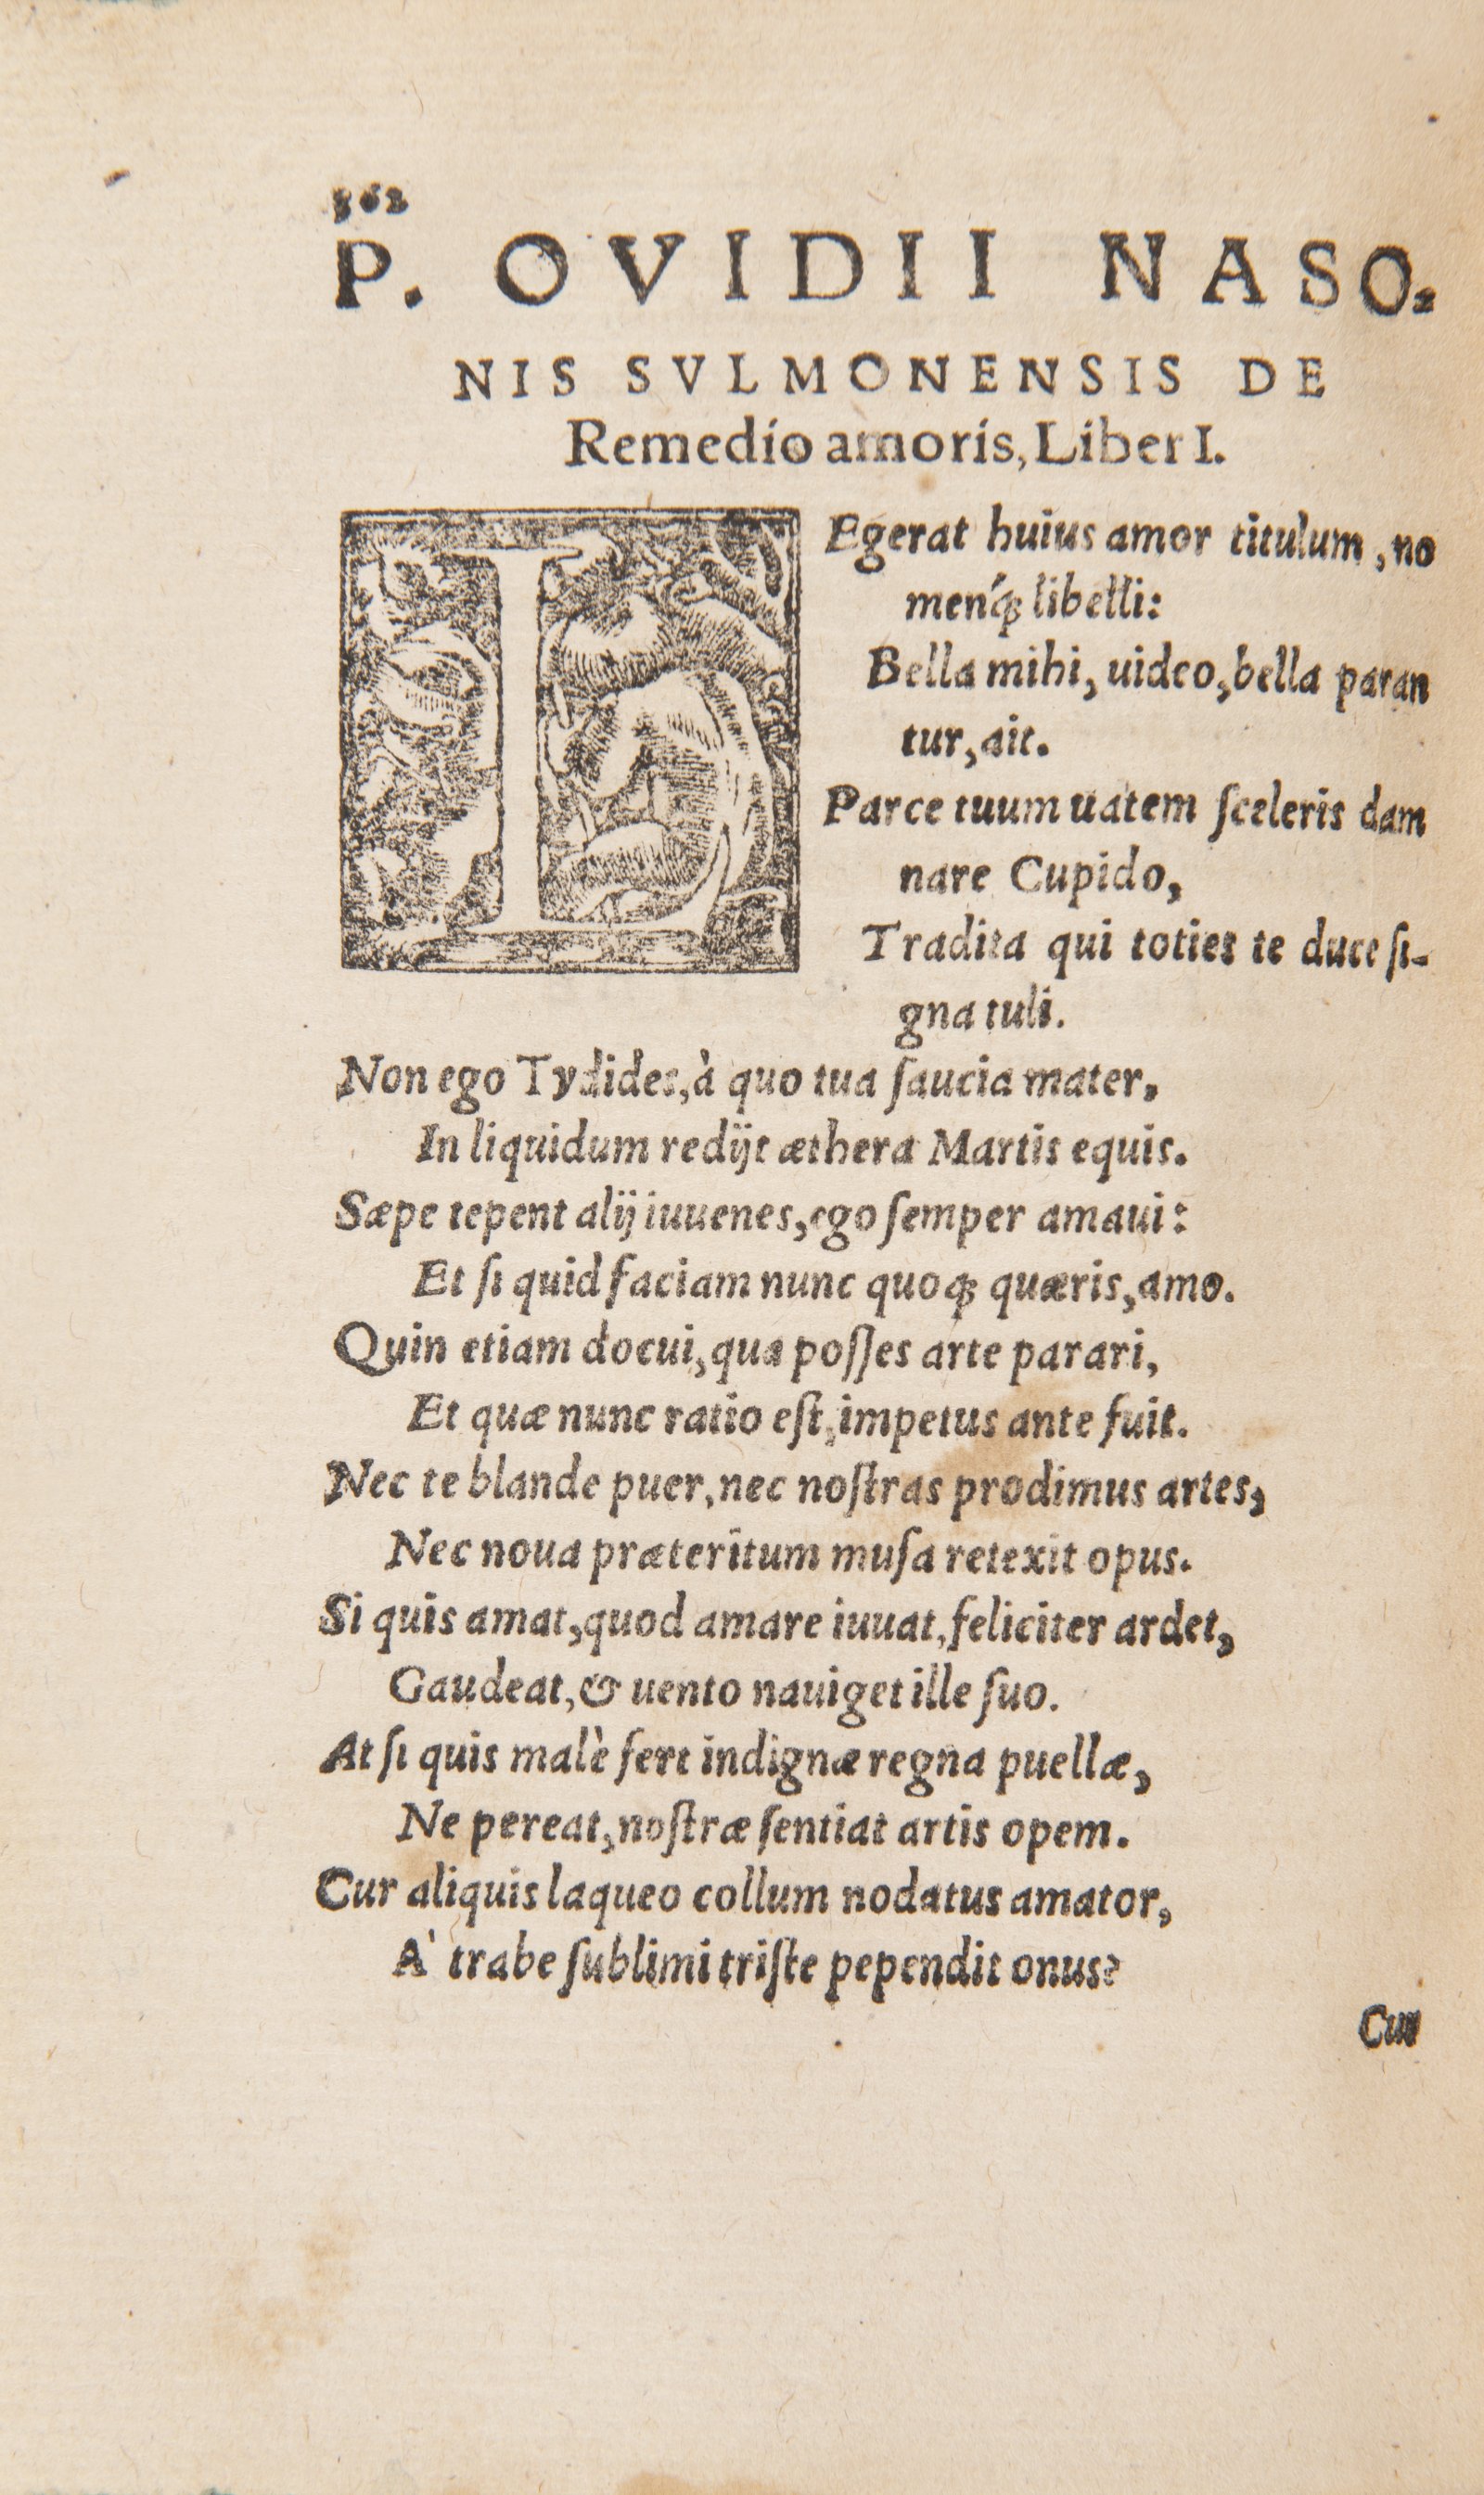 362
P. OVIDII NASO-
NIS SVLMONENSIS DE
Remedio amoris, Liber I.
LEgerat huius amor titulum, no
menq́ꝫ libelli:
Bella mihi, uideo, bella paran
tur, ait.
Parce tuum uatem ſceleris dam
nare Cupido,
Tradita qui toties te duce ſi-
gna tuli.
Non ego Tydides, à quo tua ſaucia mater,
In liquidum redijt æthera Martis equis.
Sæpe tepent alij iuuenes, ego ſemper amaui:
Et ſi quid faciam nunc quoqꝫ quæris, amo.
Quin etiam docui, qua poſſes arte parari,
Et quæ nunc ratio eſt, impetus ante fuit.
Nec te blande puer, nec noſtras prodimus artes,
Nec noua præteritum muſa retexit opus.
Si quis amat, quod amare iuuat, feliciter ardet,
Gaudeat, & uento nauiget ille ſuo.
At ſi quis malè fert indignæ regna puellæ,
Ne pereat, noſtræ ſentiat artis opem.
Cur aliquis laqueo collum nodatus amator,
A` trabe ſublimi triſte pependit onus?
Cur